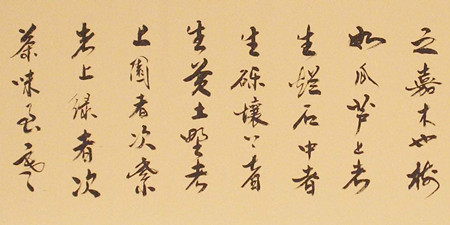 之嘉木也樹
如瓜芦上者
生爛石中者
生礫壤下者
生黄土野者
上園者次紫
者上緑者次
茶味至寒